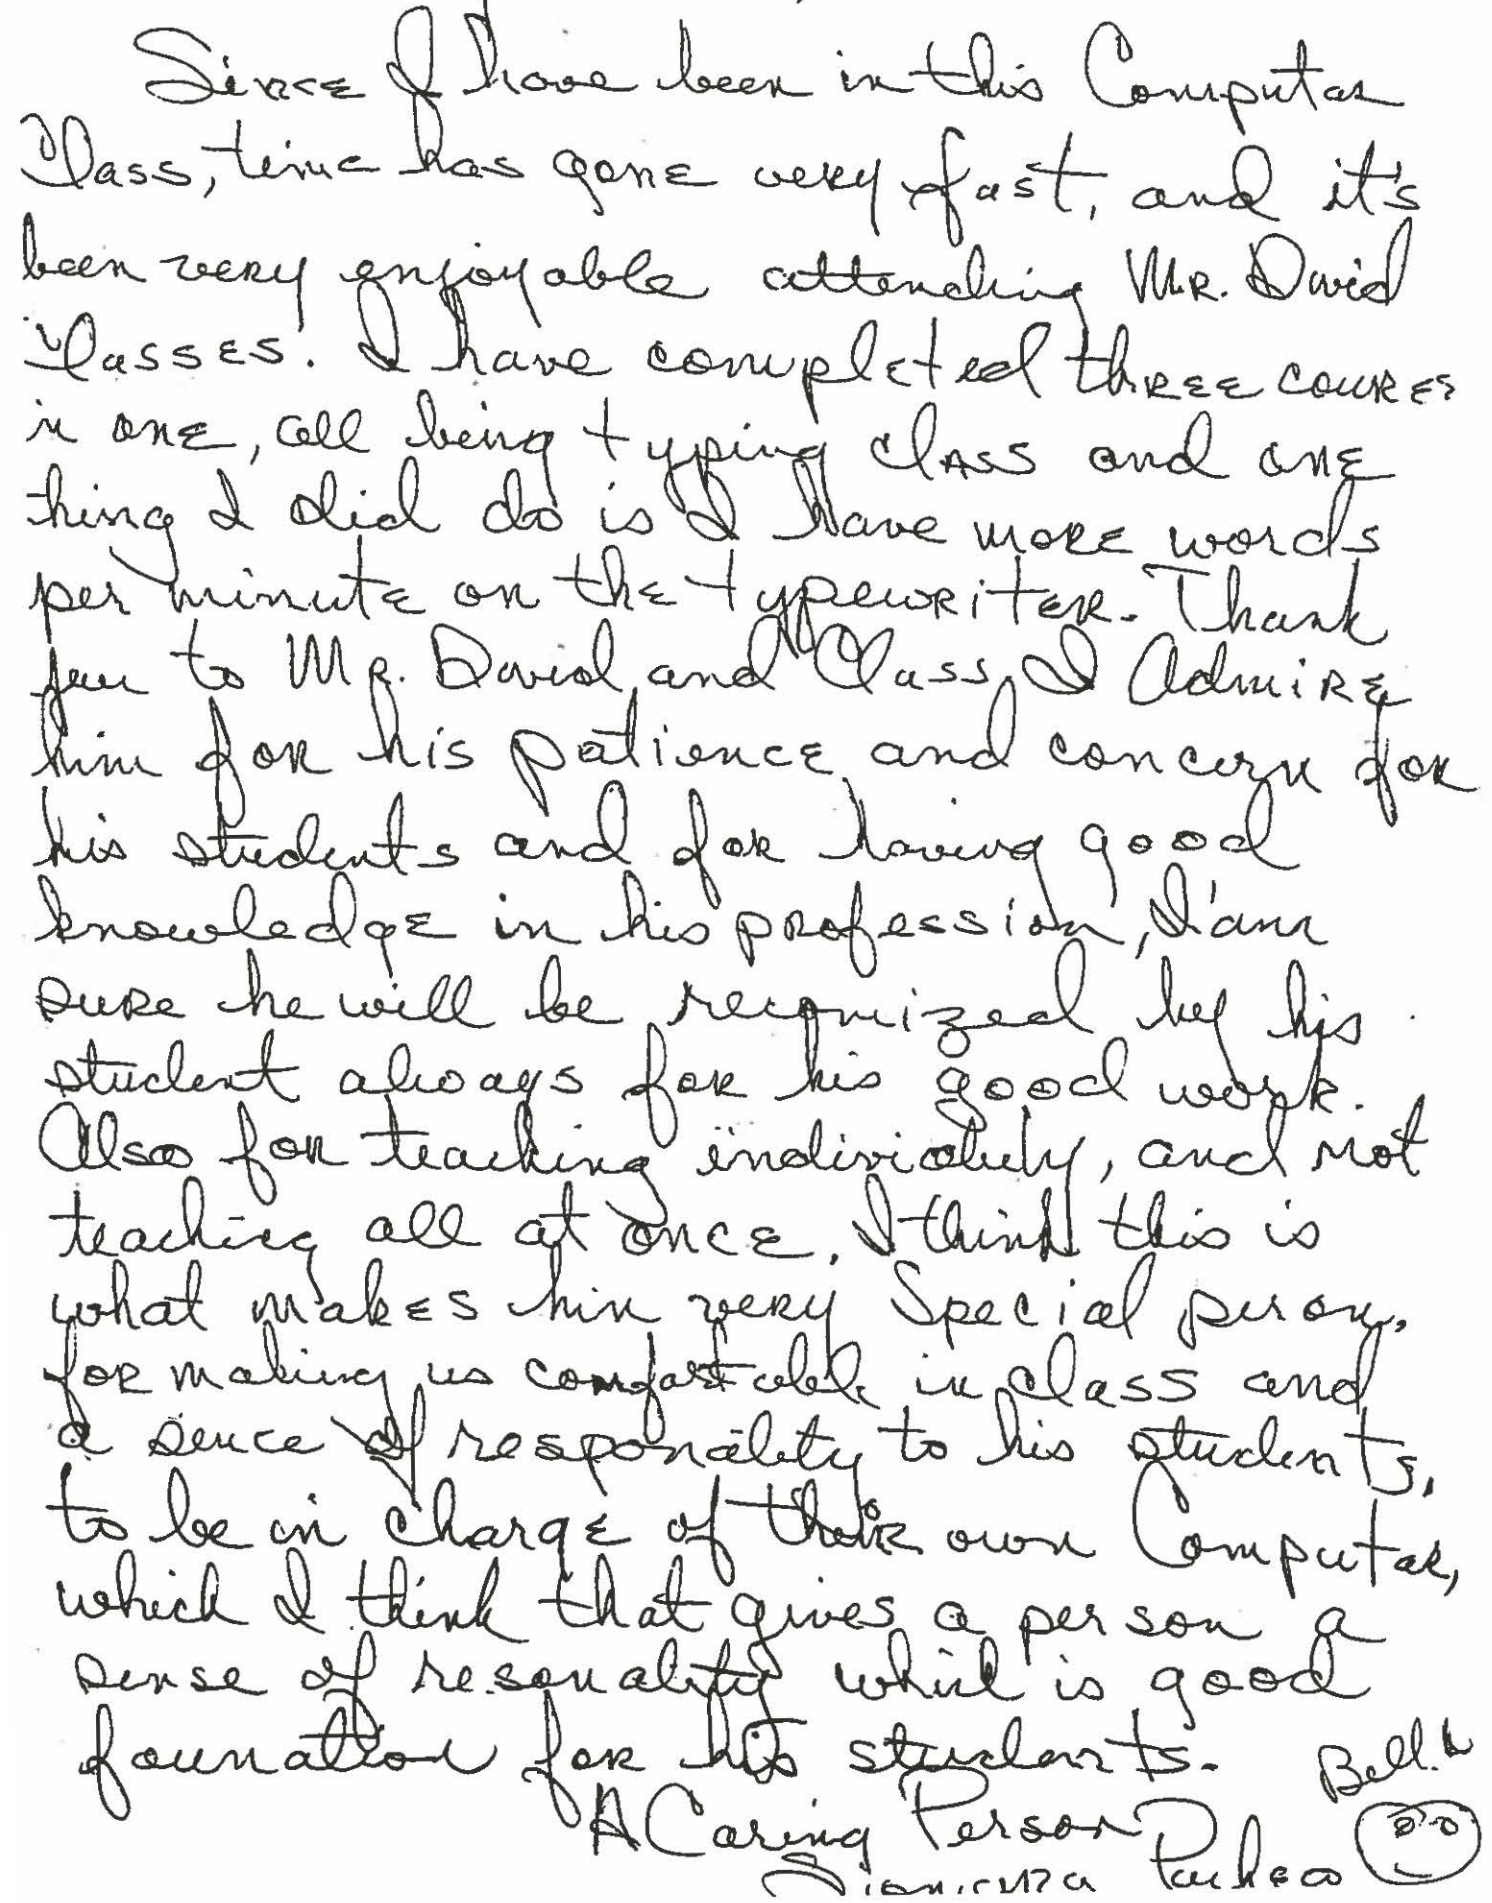 Since I have been in this Computar
Class, time has gone very fast, and it's
been very enjoyable attending Mr. David
Classes. I have completed three courses
in one, all being typing class and one
thing I did do is I have more words
per minute on the typewriter. Thank
you to Mr. David and Class, I Admire
him for his patience and concern for
his students and for having good
knowledge in his profession, I'am
sure he will be recognized by his
student always for his good work.
Also for teaching individuly, and not
teaching all at once. I think this is
what makes him very Special person.
for making us comfortable in class and
a sence of responality to his students,
to be in charge of their own Computar,
which I think that gives a person a
sense of resonality which is good
founation for his students.
Bell.
A Caring Person
Pacheco